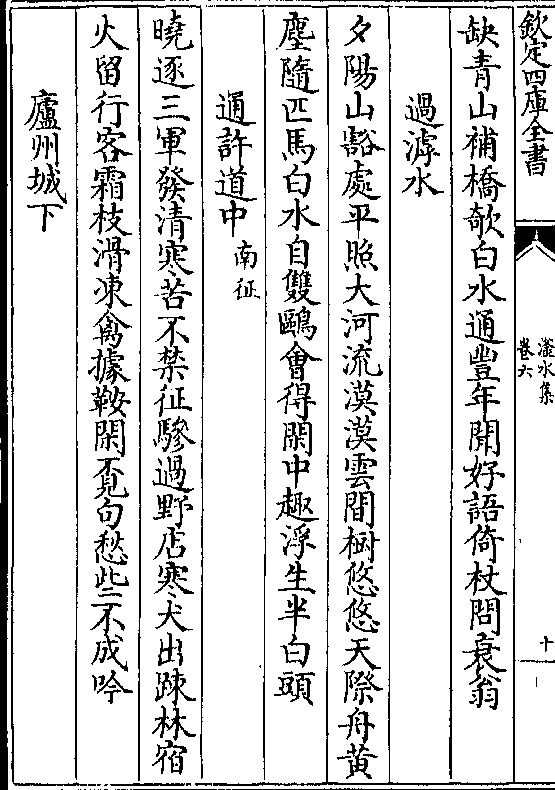 欽定四庫全書
滏水集
卷六
十
缺青山補橋欹白水通豐年聞好語倚杖問衰翁
過滹水
夕陽山豁處平照大河流漠漠雲間樹悠悠天際舟黄
塵隨匹馬白水自雙鷗會得閑中趣浮生半白頭
通許道中南征
曉逐三軍發清寒苦不禁征驂過野店寒犬出踈林宿
火留行客霜枝滑凍禽據鞍閑覓句愁些不成吟
廬州城下